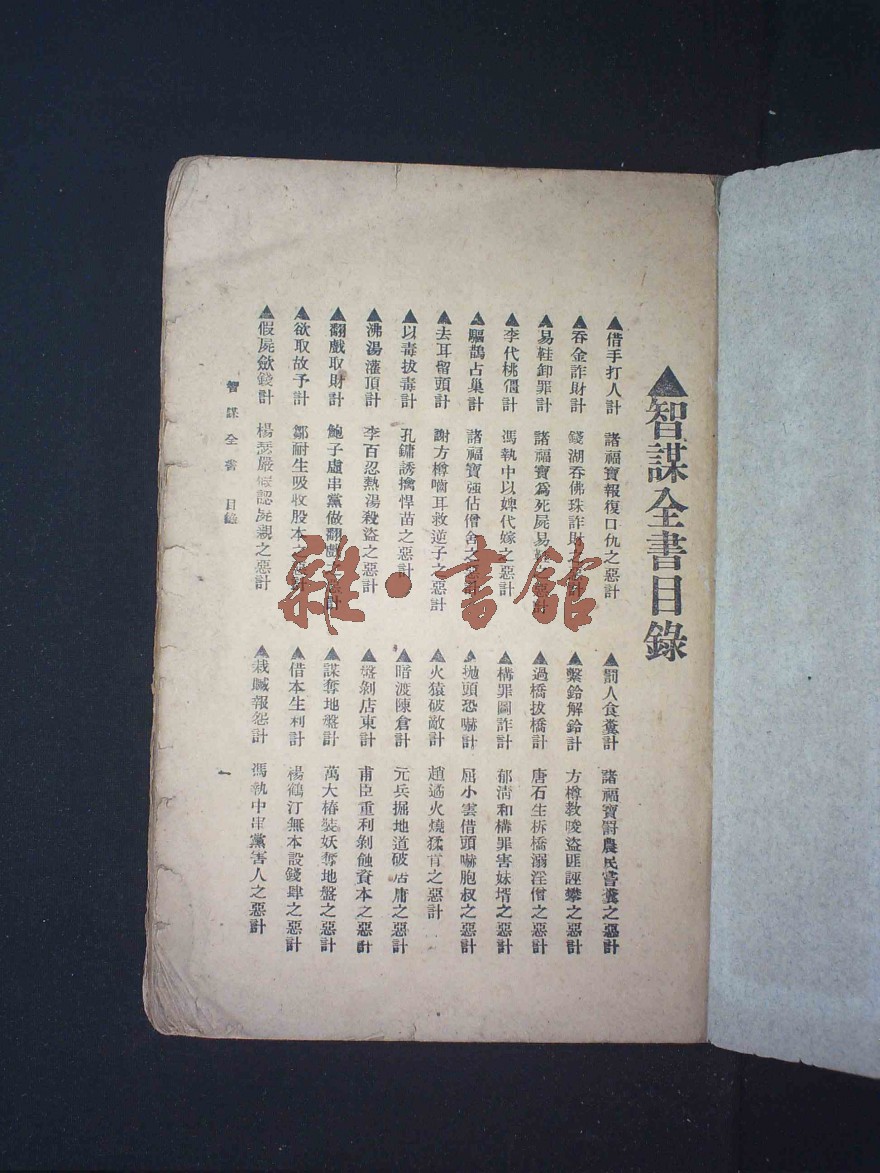 ▲智謀全書目錄
▲借手打人計 諸福寶報復口仇之惡計
▲罰人食糞計 諸福寶罰農民嘗糞之惡計
▲吞金詐財計 錢湖吞佛珠詐財之惡計
▲繫鈴解鈴計 方樽教唆盜匪誣攀之惡計
▲易鞋卸罪計 諸福寶為死屍易鞋之惡計
▲過橋拔橋計 唐石生拆橋溺淫僧之惡計
▲李代桃僵計 馮執中以婢代嫁之惡計
▲構罪圖詐計 郁清和構罪害妹壻之惡計
▲驅鵲占巢計 諸福寶强佔僧舍之惡計
▲拋頭恐嚇計 屈小雲借頭嚇胞叔之惡計
▲去耳留頭計 謝方樽嚙耳救逆子之惡計
▲火猿破敵計 趙遹火燒猛之惡計
▲以毒拔毒計 孔鏞誘擒悍苗之惡計
▲暗渡陳倉計 元兵掘地道破居庸之惡計
▲沸湯灌頂計 李百忍熱湯殺盜之惡計
▲盤剝店東計 甫臣重利剝蝕資本之惡計
▲翻戲取財計 鮑子虛串黨做翻戲之惡計
▲謀奪地盤計 萬大椿裝妖奪地盤之惡計
▲欲取故予計 鄒耐生吸收股本之惡計
▲借本生利計 楊鶴汀無本設錢肆之惡計
▲假屍斂錢計 楊瑟嚴假認屍親之惡計
▲栽贓報怨計 馮執中串黨害人之惡計
智謀全書 目錄
一
雜·書館